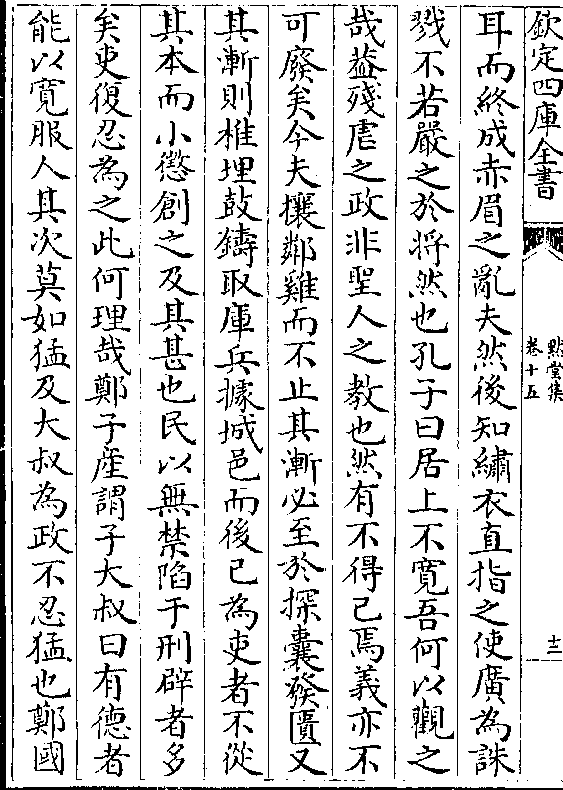 欽定四庫全書
點堂集
卷十五
十三
耳而終成赤眉之亂夫然後知繡衣直指之使廣為誅
戮不若嚴之於將然也孔子曰居上不寛吾何以觀之
哉葢殘虐之政非聖人之教也然有不得已焉義亦不
可廢矣今夫攘鄰雞而不止其漸必至於探囊發匱又
其漸則椎埋鼓鑄取庫兵據城邑而後已為吏者不從
其本而小懲創之及其甚也民以無禁陷于刑辟者多
矣吏復忍為之此何理哉鄭子産謂子大叔曰有德者
能以寛服人其次莫如猛及大叔為政不忍猛也鄭國